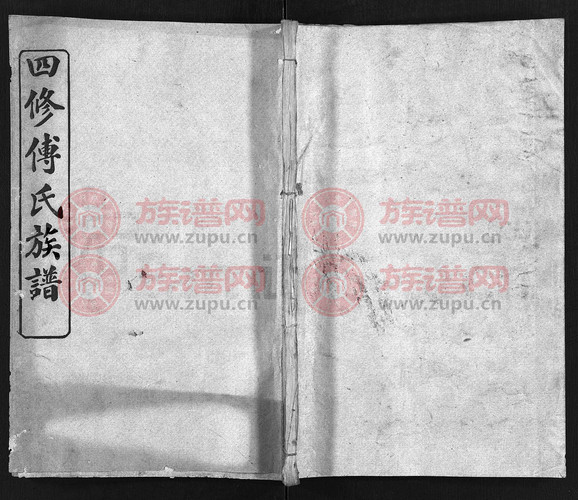 四修傅氏族譜
族谱网
www.zupu.cn
族谱网
www.zupu.cn
族谱网
www.zupu.cn
族谱网
www.zupu.cn